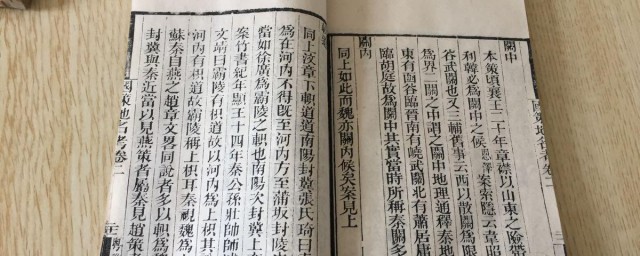 關中
本策頃襄王二十年章襟以山東之險帶
利韓必為關中之候 案索隱云韋昭
谷武關也又三輔舊事云西以散關為限
為界二關之中謂之關中地理通釋秦地
東有函谷臨晉南有嶢武關北有蕭居庸
臨胡庭故為關中其實當時所稱秦關多
關內
同上如此而魏亦關內候矣案見上
國策地名考卷二
同上汶章下軹道道南陽封冀張氏琦曰
為在河內不得既至河內方至蒲坂封陵也
瓚如徐廣為霸陵之軹也南陽次封冀上
案竹書紀年顯王十四年秦公孫壯帥師
文靖曰霸陵有枳道故以河內為上枳其
河內有枳道故霸陵稱上枳耳秦視魏為
蘇秦自燕之趙章文畧同說者多以軹為
封冀與秦近當以見燕策者屬秦見趙策者
國策地名考卷二